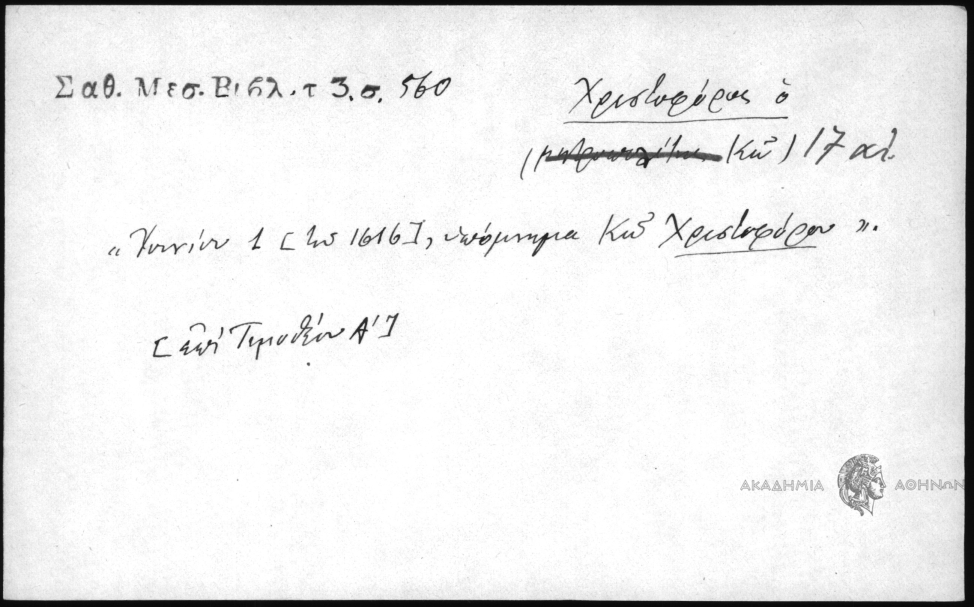 Σαθ. Μεσ. Βιβλ. τ 3. σ. 560
Χριστοφόρος ὁ
(μητροπολίτης Κῶ) 17 αἰ.
« Ἰουνίου 1 [τοῦ 1616], ὑπόμνημα Κῶ Χριστοφόρου ».
[ἐπὶ Τιμοθέου Α']
ΑΚΑΔΗΜΙΑ ΑΘΗΝΩΝ